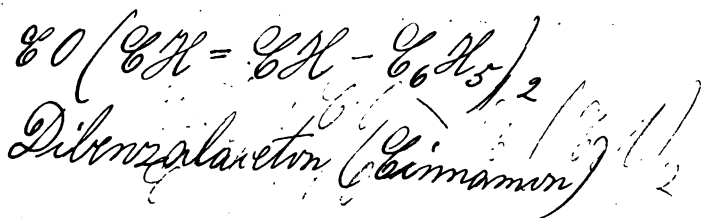 CO(CH = CH - C₆H₅)₂
Dibenzalaceton (Cinnamon)